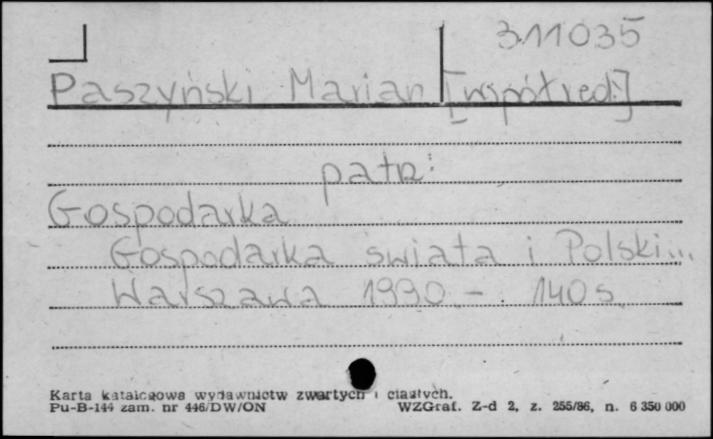 311035
Paszyński Marian [współred.]
patrz:
Gospodarka
Gospodarka świata i Polski...
Warszawa 1990.- 140 s.
Karta katalogowa wydawnictw zwartych i ciągłych.
Pu-B-144 zam. nr 446/DW/ON WZGraf. Z-d 2, z. 255/86, n. 6 350 000